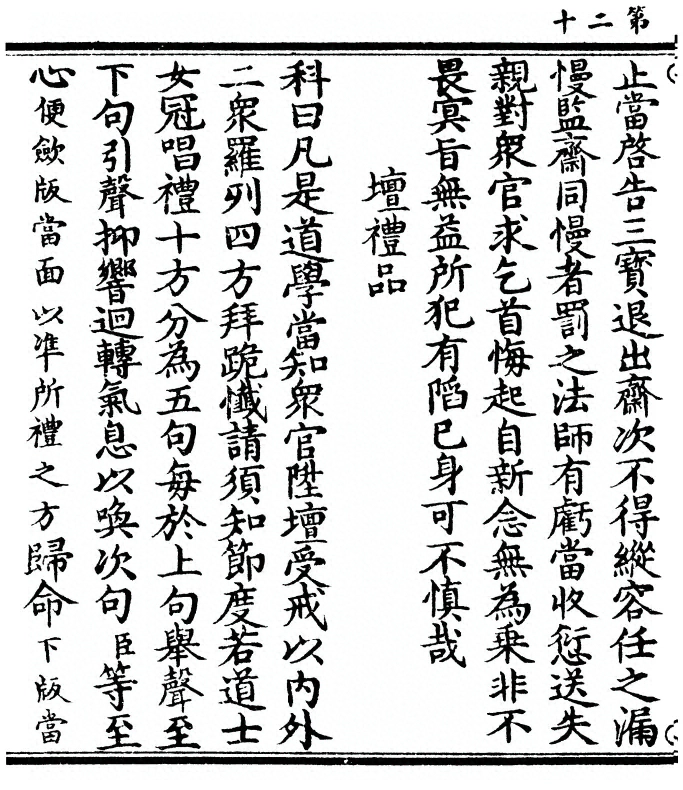 第二十
止當啓告三寶退出齋次不得縱容任之漏
慢監齋同慢者罰之法師有虧當收愆送失
親對衆官求乞首悔起自新念無為乗非不
畏冥旨無益所犯有䧟已身可不慎哉
壇禮品
科曰凡是道學當知衆官陞壇受戒以内外
二衆羅列四方拜跪懺請須知節度若道士
女冠唱禮十方分為五句每於上句舉聲至
下句引聲抑響迴轉氣息以喚次句臣等至
心便歛版當面以凖所禮之方歸命下版當